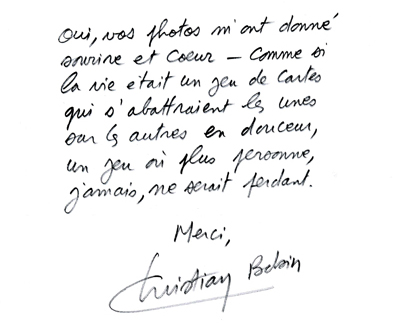 Oui, vos photos m'ont donné
sourire et Coeur – Comme si
la vie était un jeu de Cartes
qui s'abattraient les unes
sur les autres en douceur,
un jeu où plus personne,
jamais, ne serait perdant.
Merci,
Christian Bobin